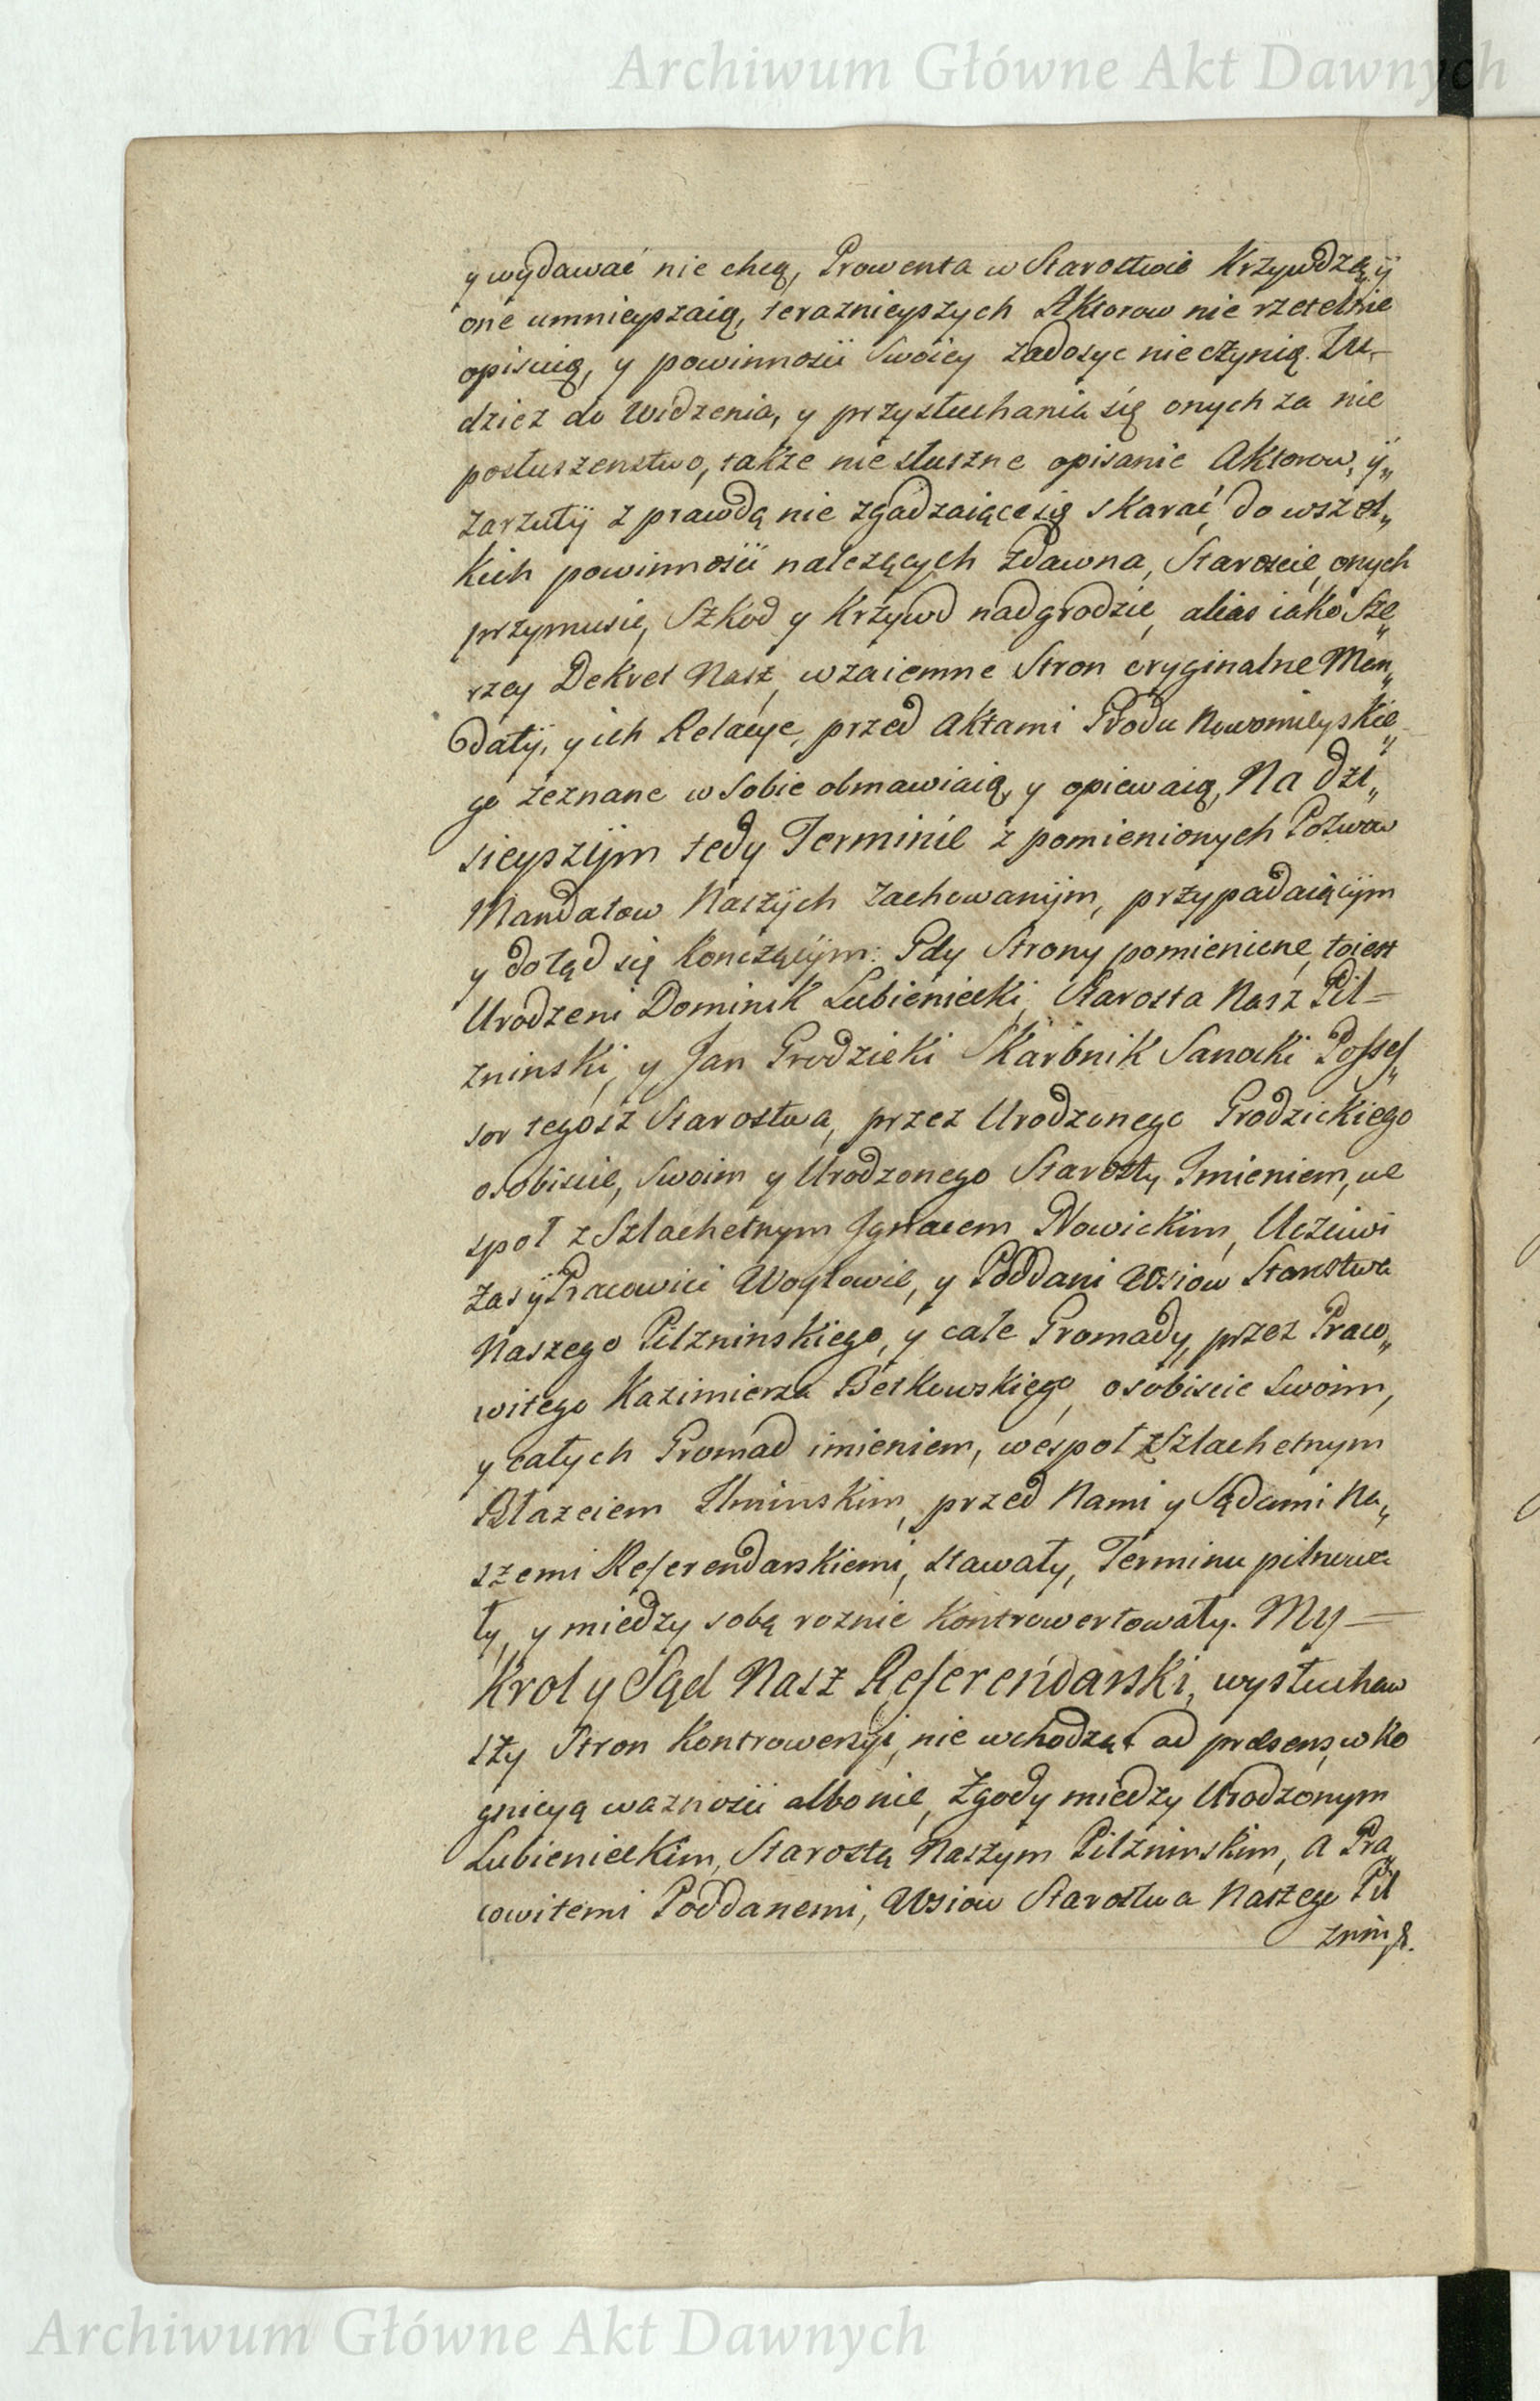 Archiwum Główne Akt Dawnych
y wydawać nie chcą, Prowenta w Starostwie Krzywdzą, ÿ
one umnieyszaią, teraznieyszych Aktorow nie rzetelnie
opisuią, y powinnosci Swoiey zadosyc nie czynią. Tu-
dziez do Widzenia, y przysłuchania się onych za nie
posłuszenstwo, także niesłuszne opisanie Aktorow, ÿ„
zarzutÿ z prawdą nie zgadzaiące się skarać, do wszel„
kich powinnosci nalezących zdawna, Staroscie, onych
przymusic, Szkod y Krzywd nadgrodzic, alias iako Sze„
rzey Dekret Nasz, wzaiemne Stron oryginalne Man„
datÿ, y ich Relacye, przed Aktami Grodu Nowomieyskie„
go zeznane w sobie obmawiaią, y opiewaią, Na dzi„
sieyszÿm tedy Terminie z pomienionych Pozwow
Mandatow Naszÿch zachowanÿm, przypadaiącÿm
y dotąd się konczącÿm: Gdy Strony pomienione, toiest
Urodzeni Dominik Lubieniecki, Starosta Nasz Pil=
zninski, y Jan Grodzicki Skarbnik Sanocki Posses„
sor tegosz Starostwa, przez Urodzonego Grodzickiego
osobiscie, Swoim y Urodzonego Starosty Imieniem, we
społ z Szlachetnym Ignacem Nowickim, Uczciwi
zas ÿ Pracowici Woytowie, y Poddani Wsiow Starostwa
Naszego Pilzninskiego, y całe Gromady, przez Praco„
witego Kazimierza Betkowskiego, osobiscie Swoim,
y całych Gromad imieniem, wespoł z Szlachetnym
Błazeiem Uminskim, przed Nami y Sądami Na„
szemi Referendarskiemi, stawały, Terminu pilnowa
ły, y miedzy sobą roznie kontrowertowały. My=
Krol y Sąd Nasz Referendarski, wysłuchaw
szy Stron Kontrowersyi, nie wchodząc ad praesens, w ko
gnicyą waznosci albo nie, Zgody miedzy Urodzonym
Lubienieckim, Starostą Naszym Pilzninskim, a Pra„
cowitemi Poddanemi, Wsiow Starostwa Naszego Pil
znins.
Archiwum Główne Akt Dawnych